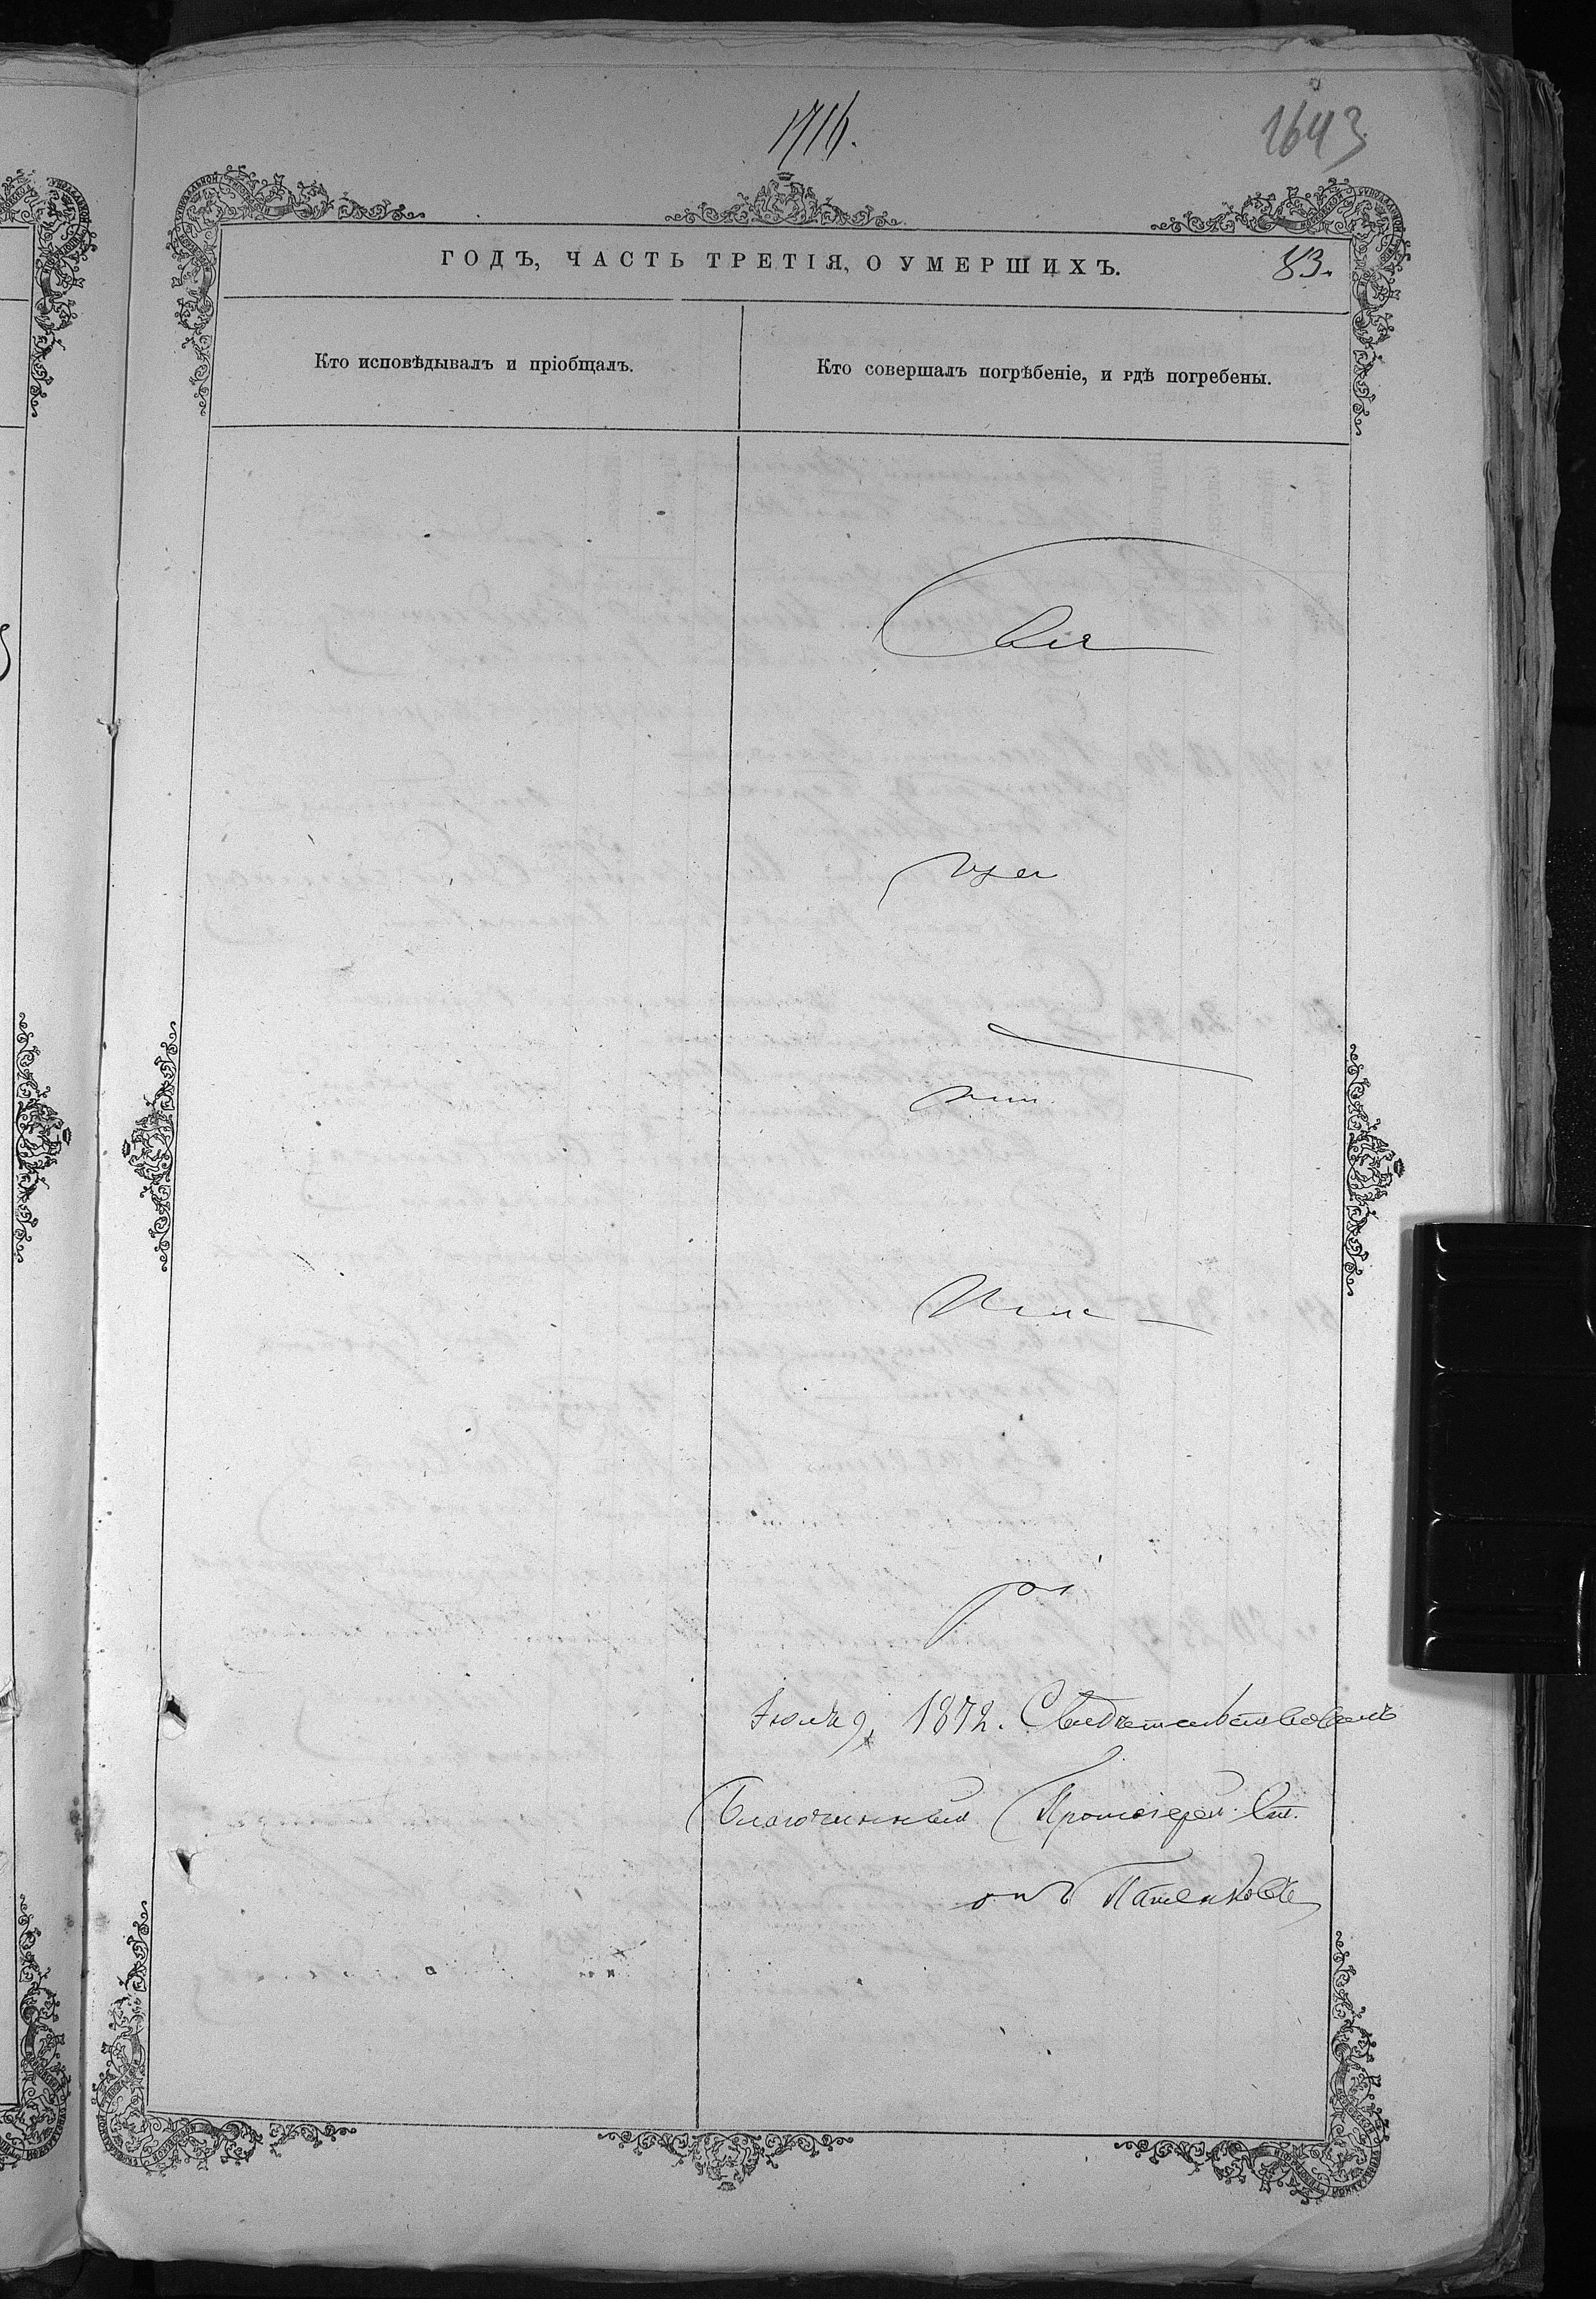 1716.
1643
ГОДЪ, ЧАСТЬ ТРЕТІЯ, О УМЕРШИХЪ.
83.
Кто исповѣдывалъ и пріобщалъ.
Кто совершалъ погрѣбеніе, и гдѣ погребены.
Свя
ще
нни
1872. Свидѣтельствовалъ
Благочинный Протоіерей